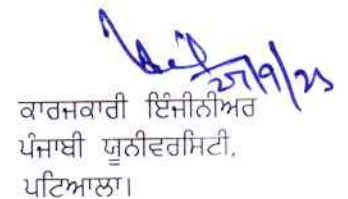 ਕਾਰਜਕਾਰੀ ਇੰਜੀਨੀਅਰ
ਪੰਜਾਬੀ ਯੂਨੀਵਰਸਿਟੀ,
ਪਟਿਆਲਾ।